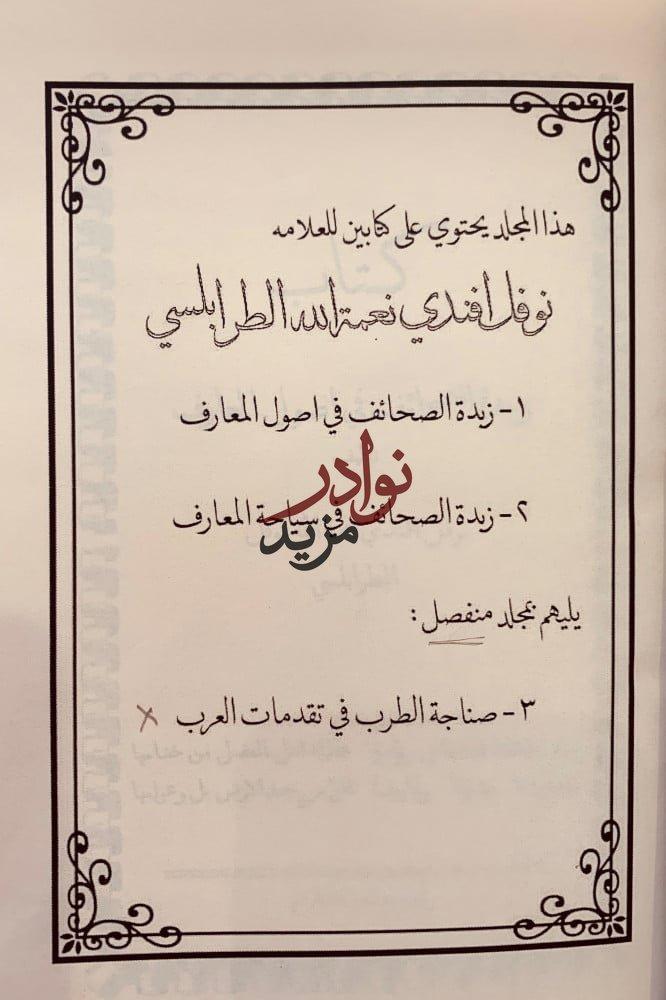 هذا المجلد يحتوي على كتابين للعلامه
نوفل افندي نعمة الله الطرابلسي
١- زبدة الصحائف في اصول المعارف
نوادر
٢- زبدة الصحائف في سياحة المعارف
مزيد
يليهم بمجلد منفصل:
٣- صناجة الطرب في تقدمات العرب